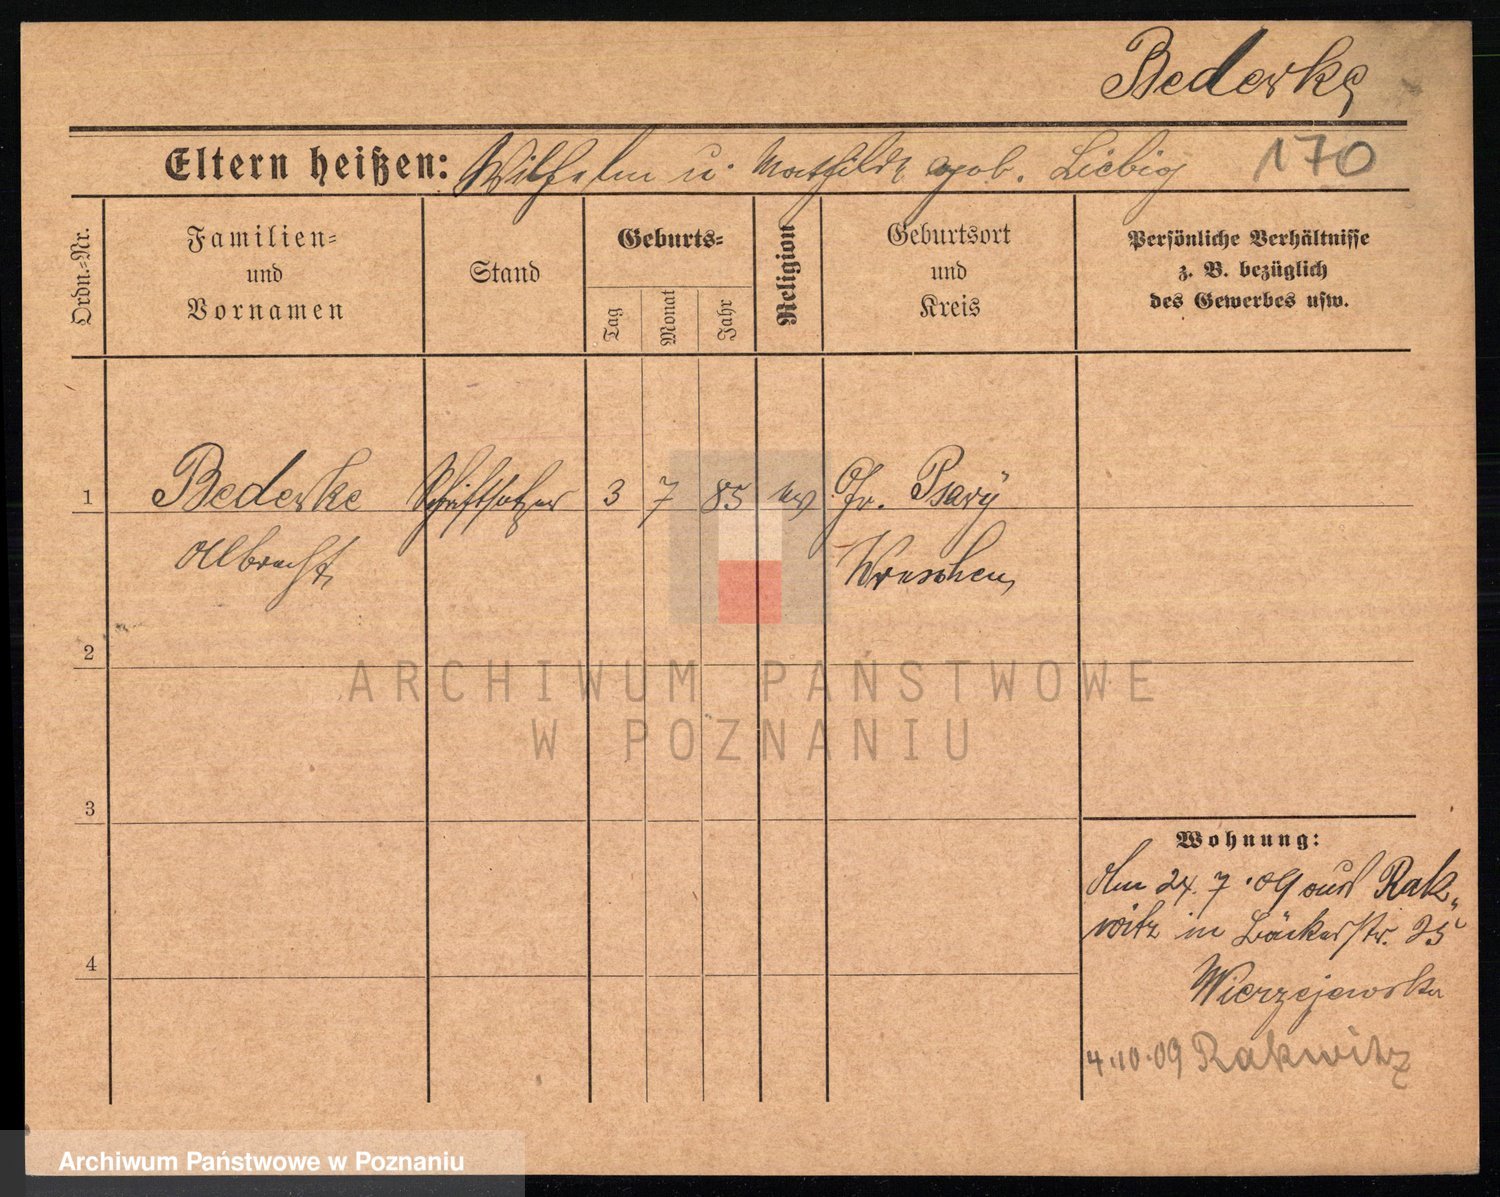 Bederke
Eltern heißen: Wilhelm u. Mathilde geb. Liebig 170
Ordn.=Nr.
Familien=
und
Vornamen
Stand
Geburts=
Tag
Monat
Jahr
Religion
Geburtsort
und
Kreis
Persönliche Verhältnisse
z. B. bezüglich
des Gewerbes usw.
1 Bederke Schriftsetzer 3 7 85 ev Gr. Psary
Albrecht Wreschen
2
ARCHIWUM PAŃSTWOWE
W POZNANIU
3
Wohnung:
Am 24.7.09 aus Rak-
witz in Bäckerstr. 25
4
Wierzejewska
4.10.09 Rakwitz
Archiwum Państwowe w Poznaniu